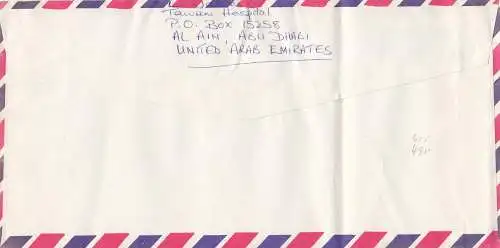 Tawam Hospital
P.O. Box 15258
AL AIN, ABU DHABI
UNITED ARAB EMIRATES